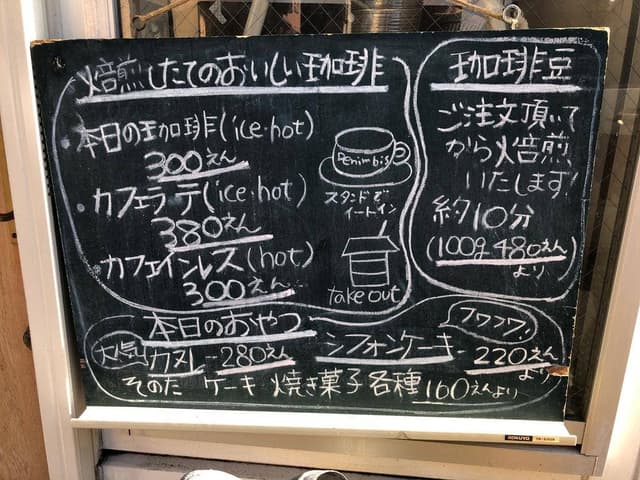 焙煎したてのおいしい珈琲
・本日の珈琲(ice・hot)
300えん
・カフェラテ(ice・hot)
380えん
・カフェインレス(hot)
300えん
Penimbis
スタンドで
イートイン
take out
珈琲豆
ご注文頂いて
から焙煎
いたします!
約10分
(100g 480えん
より)
本日のおやつ
大人気! カヌレ 280えん
フワフワ!
シフォンケーキ 220えん
より
そのた ケーキ 焼き菓子各種 160えんより
KOKUYO